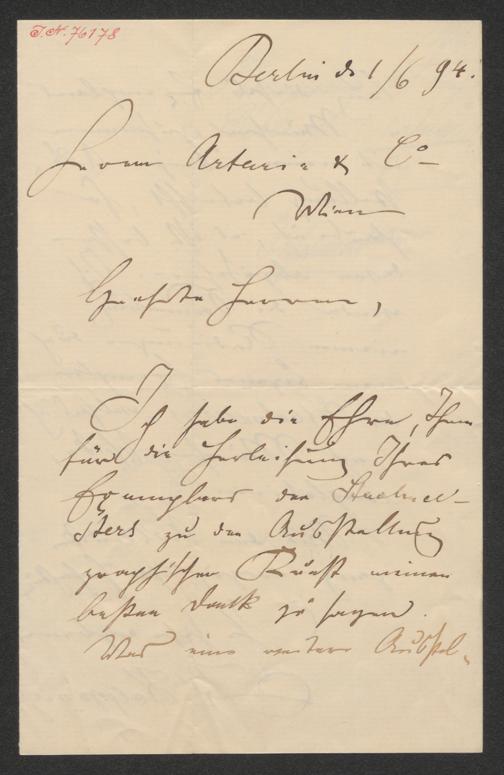 I.N. 76178
Berlin d. 1/6 94.
Herren Artaria & Co
Wien
Geehrte Herren,
Ich habe die Ehre, Ihnen
für die Herleihung Ihres
Exemplars des
sters zu der Ausstellung
graphischer Kunst meinen
besten Dank zu sagen.
Was eine weitere Ausstel-